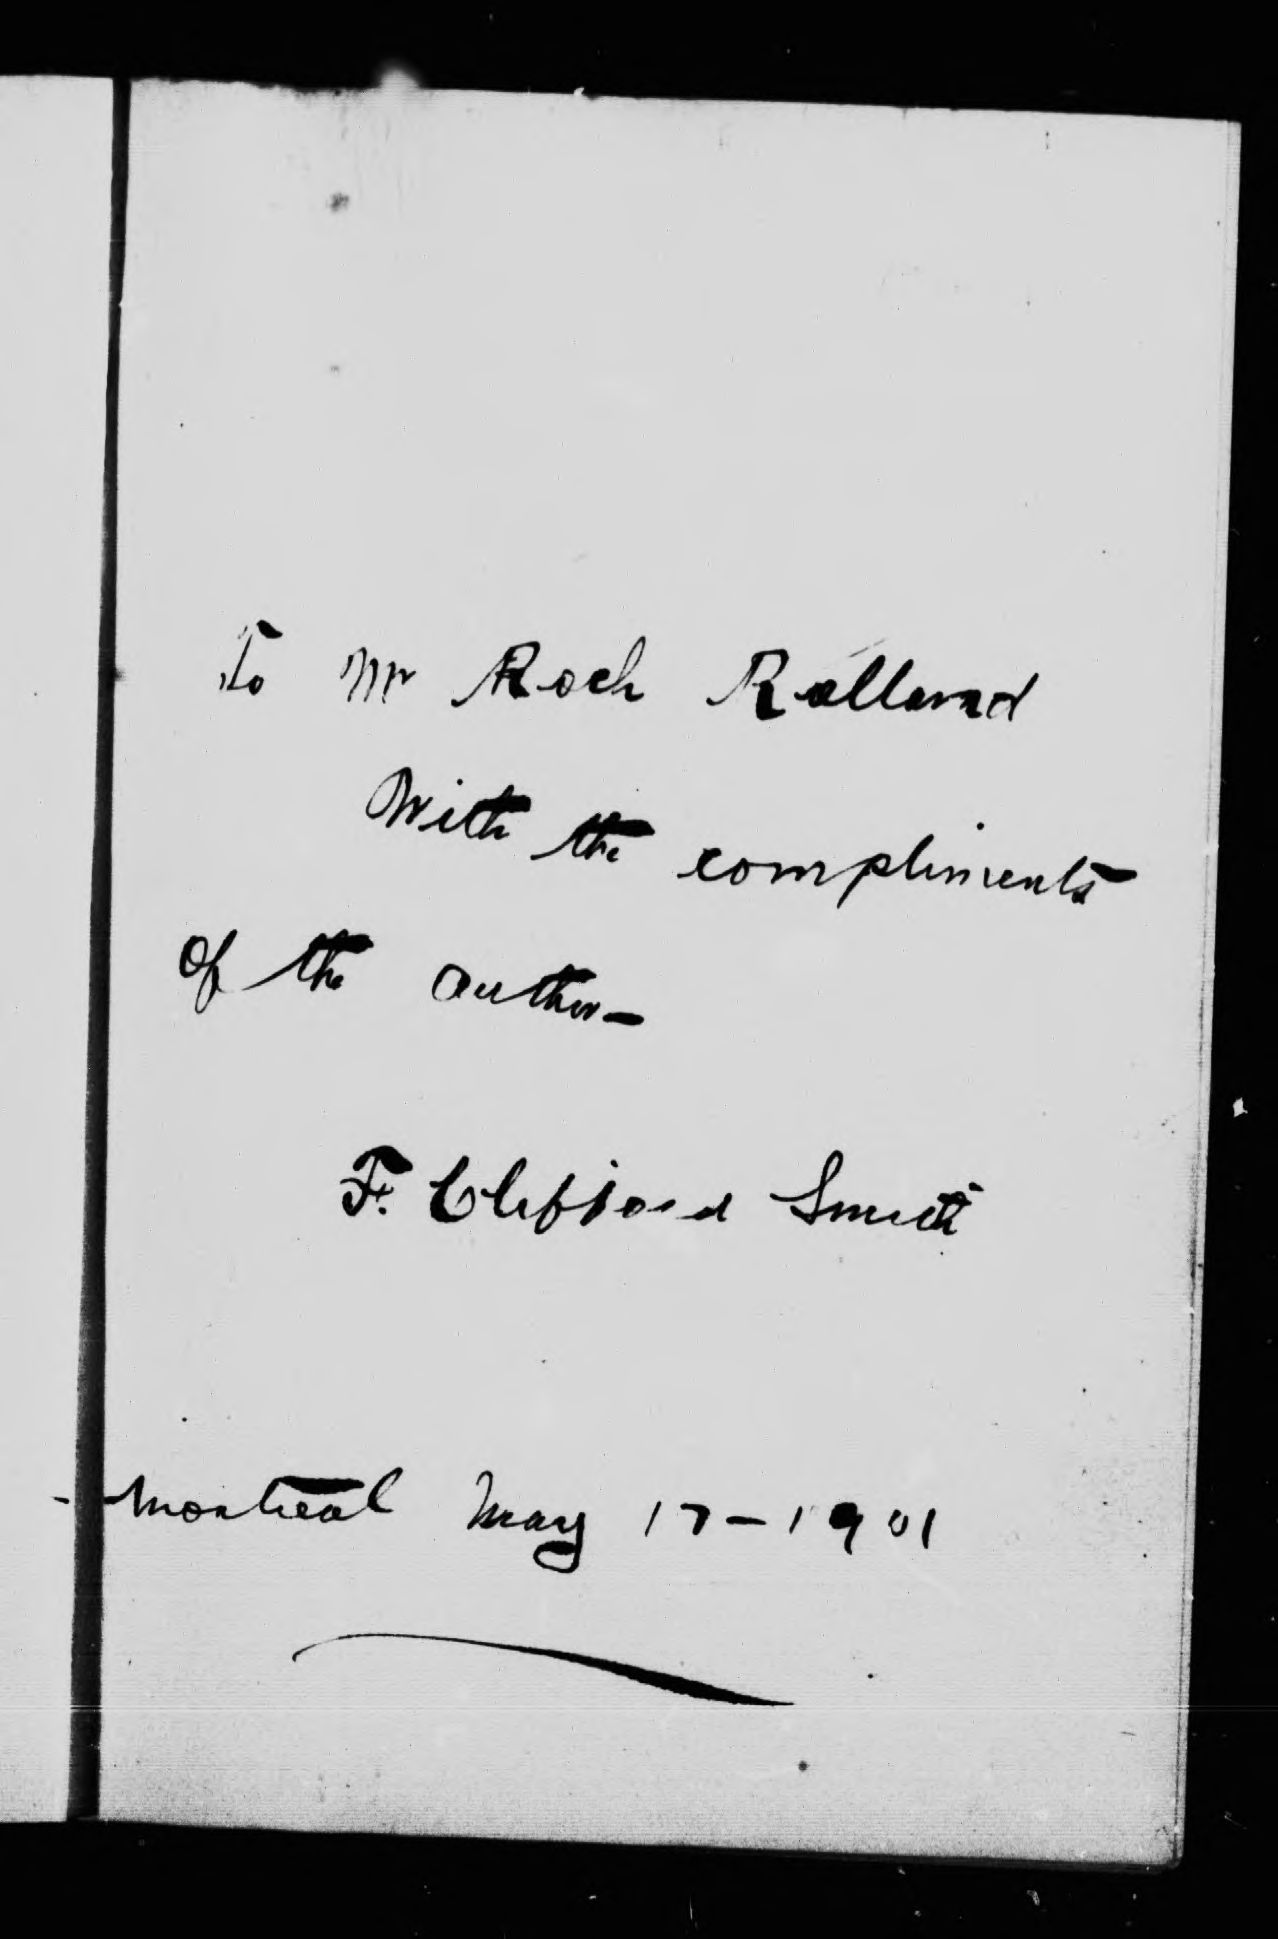 To Mr Roch Rolland
With the compliments
of the author—
F. Clifford Smith
Montreal May 17-1901